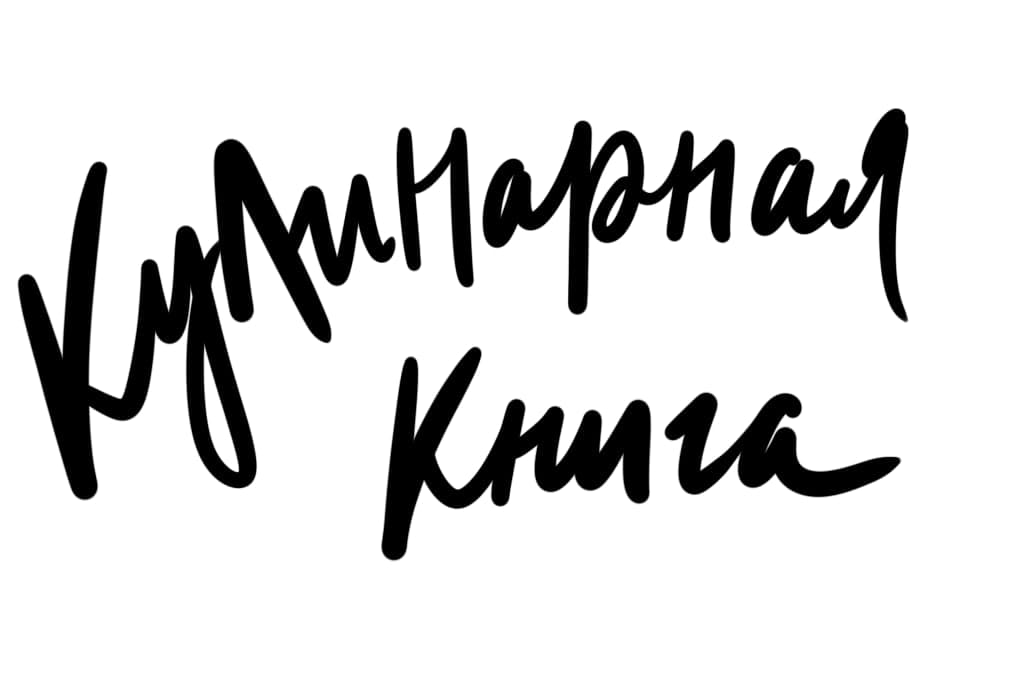 Кулинарная
Книга